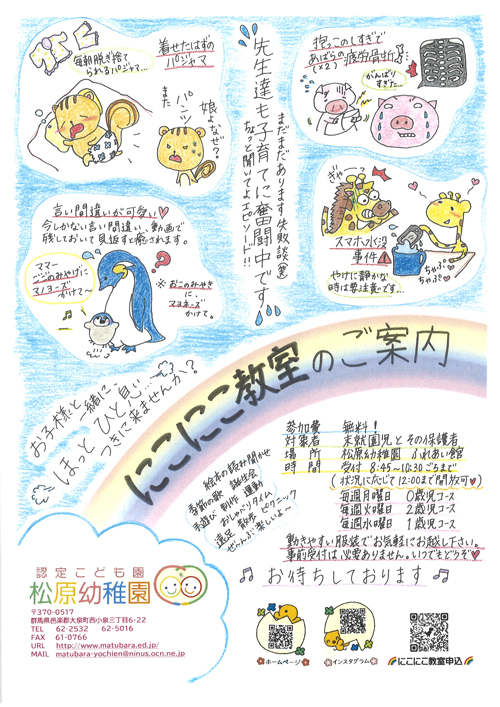 先生達も子育てに奮闘中です
まだまだあります失敗談(笑)
ちょっと聞いてよエピソード!!
着せたはずの
パジャマ
毎朝脱ぎ捨て
られるパジャマ…
娘よなぜ?
また
パンツ…
抱っこのしすぎで
あばらの疲労骨折
(×2)
がんばり
すぎた…
言い間違いが可愛い♥
今しかない言い間違い、動画で
残しておいて見返すと癒されます。
ママー
マノヨーズ
かけて〜
※
おこのみやきに、
マヨネーズ
かけて。
ぎゃー
スマホ水没
事件
ちゃぷ
ちゃぷ
やけに静かな
時は要注意です…
お子様と一緒に
ほっとひと息…
つきに来ませんか?
にこにこ教室のご案内
絵本の読み聞かせ
季節の歌 誕生会
手遊び 制作 運動
おしゃべりタイム
遠足 散歩 ピクニック
ぜ〜んぶ楽しいよ〜
参加費 無料!
対象者 未就園児とその保護者
場所 松原幼稚園 ふれあい館
時間 受付 8:45〜10:30ごろまで
(状況に応じて12:00まで開放可♥)
毎週月曜日 0歳児コース
毎週火曜日 2歳児コース
毎週水曜日 1歳児コース
動きやすい服装でお気軽にお越し下さい。
事前受付は必要ありません。いつでもどうぞ♥
♫お待ちしております♫
認定こども園
松原幼稚園
〒370-0517
群馬県邑楽郡大泉町西小泉三丁目6-22
TEL 62-2532 62-5016
FAX 61-0766
URL http://www.matubara.ed.jp/
MAIL matubara-yochien@ninus.ocn.ne.jp
ホームページ
インスタグラム
にこにこ教室申込